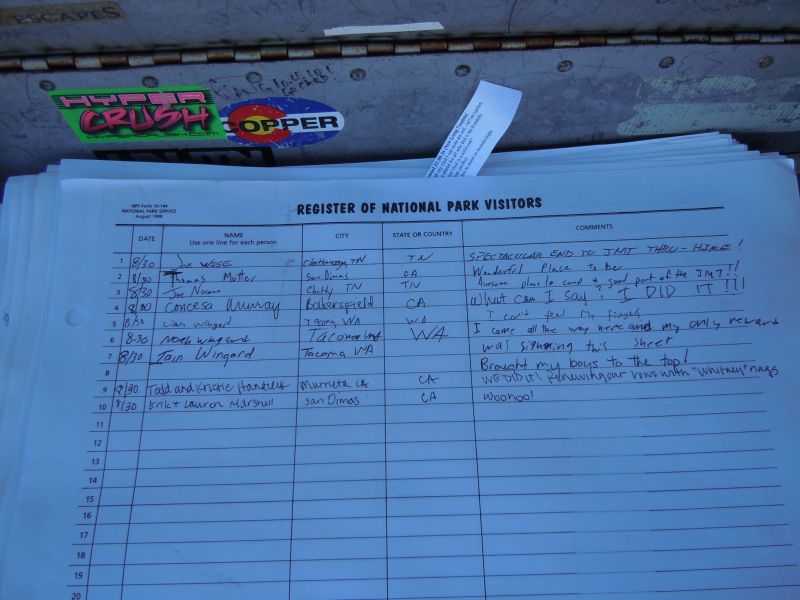 ESCAPES
HYPER
CRUSH
COPPER
NPS Form 10-144
NATIONAL PARK SERVICE
August 1998
REGISTER OF NATIONAL PARK VISITORS
DATE NAME CITY STATE OR COUNTRY COMMENTS
Use one line for each person
1 8/30 Joe Wise TN SPECTACULAR END TO JMT THRU-HIKE!
2 8/30 Thomas Mutter San Dimas CA Wonderful Place To Be
3 8/30 Joe Norman Chatty TN TN Awesome place to camp & good part of the JMT!!
4 8/30 Concesa Murray Bakersfield CA What can I say? I DID IT!!!
5 8/30 Liam Wingard Tacoma, WA WA I can't feel my fingers
6 8-30 Noah Wingard Tacoma WA I came all the way here and my only reward
7 8/30 Iain Wingard Tacoma WA was signing this sheet
8 Brought my boys to the top!
9 8/30 Todd and Kristie Murrieta CA CA WE DID IT! Renewing our vows with "Whitney" rings
10 8/30 Erik + Lauren Marshall San Dimas CA Woohoo!
11
12
13
14
15
16
17
18
19
20